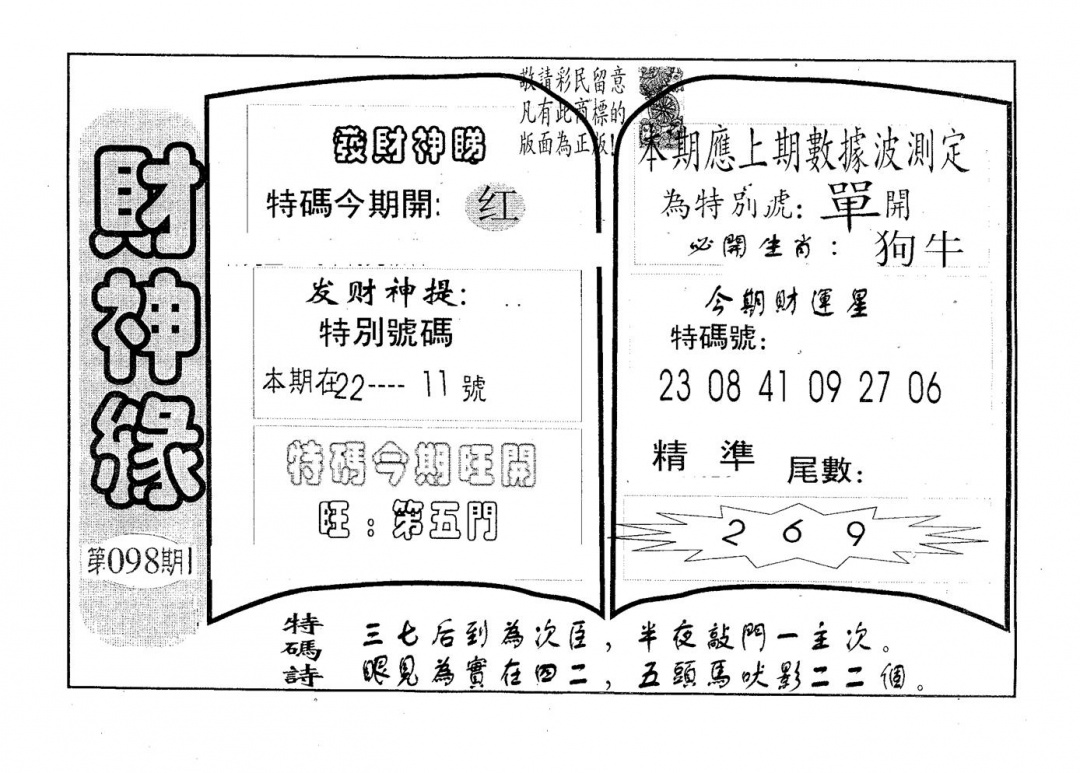 財神緣
第098期
敬請彩民留意
凡有此商標的
版面為正版!
發財神睇
特碼今期開: 红
发财神提:
特別號碼
本期在22----11號
特碼今期旺開
旺:第五門
本期應上期數據波測定
為特別虎:單開
必開生肖: 狗牛
今期財運星
特碼號:
23 08 41 09 27 06
精準 尾數:
2 6 9
特碼詩
三七后到為次臣,半夜敲門一主次。
眼見為實在四二,五頭馬吠影二二個。